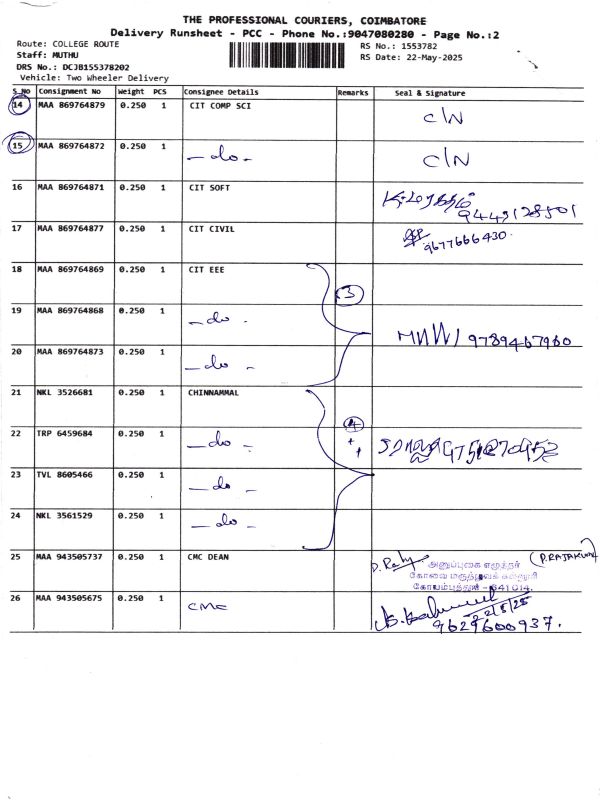 THE PROFESSIONAL COURIERS, COIMBATORE
Delivery Runsheet - PCC - Phone No.:9047080280 - Page No.:2
Route: COLLEGE ROUTE
Staff: MUTHU
DRS No.: DCJB155378202
Vehicle: Two Wheeler Delivery
RS No.: 1553782
RS Date: 22-May-2025
S_No Consignment No Weight PCS Consignee Details Remarks Seal & Signature
14 MAA 869764879 0.250 1 CIT COMP SCI C/N
15 MAA 869764872 0.250 1 - do - C/N
16 MAA 869764871 0.250 1 CIT SOFT 9443128501
17 MAA 869764877 0.250 1 CIT CIVIL 9677666430.
18 MAA 869764869 0.250 1 CIT EEE 3
19 MAA 869764868 0.250 1 - do - 9789467960
20 MAA 869764873 0.250 1 - do -
21 NKL 3526681 0.250 1 CHINNAMMAL 4
22 TRP 6459684 0.250 1 - do -
23 TVL 8605466 0.250 1 - do -
24 NKL 3561529 0.250 1 - do -
25 MAA 943505737 0.250 1 CMC DEAN (P.RAJAKUMAR)
அனுப்புகை எழுத்தர்
கோவை மருத்துவக் கல்லூரி
கோயம்புத்தூர் - 641 014.
26 MAA 943505675 0.250 1 CMC 22/5/25
9629600937.